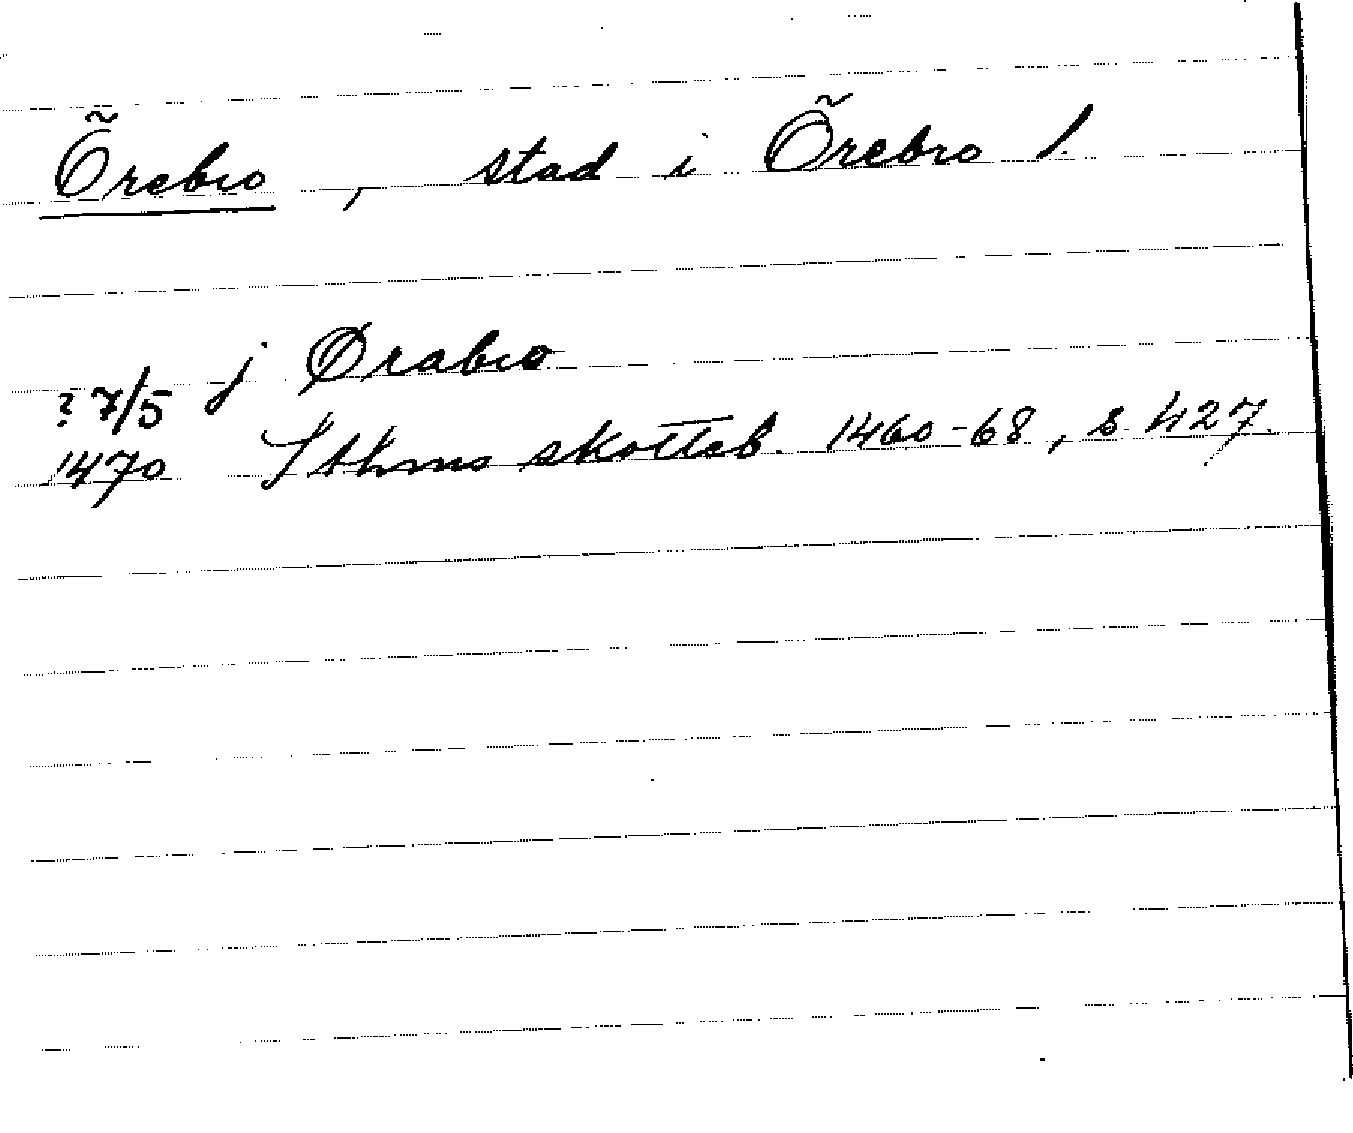 Örebro, stad i Örebro l.
j Ørabro
? 7/5
1470 Sthms skotteb. 1460-68, s 427.